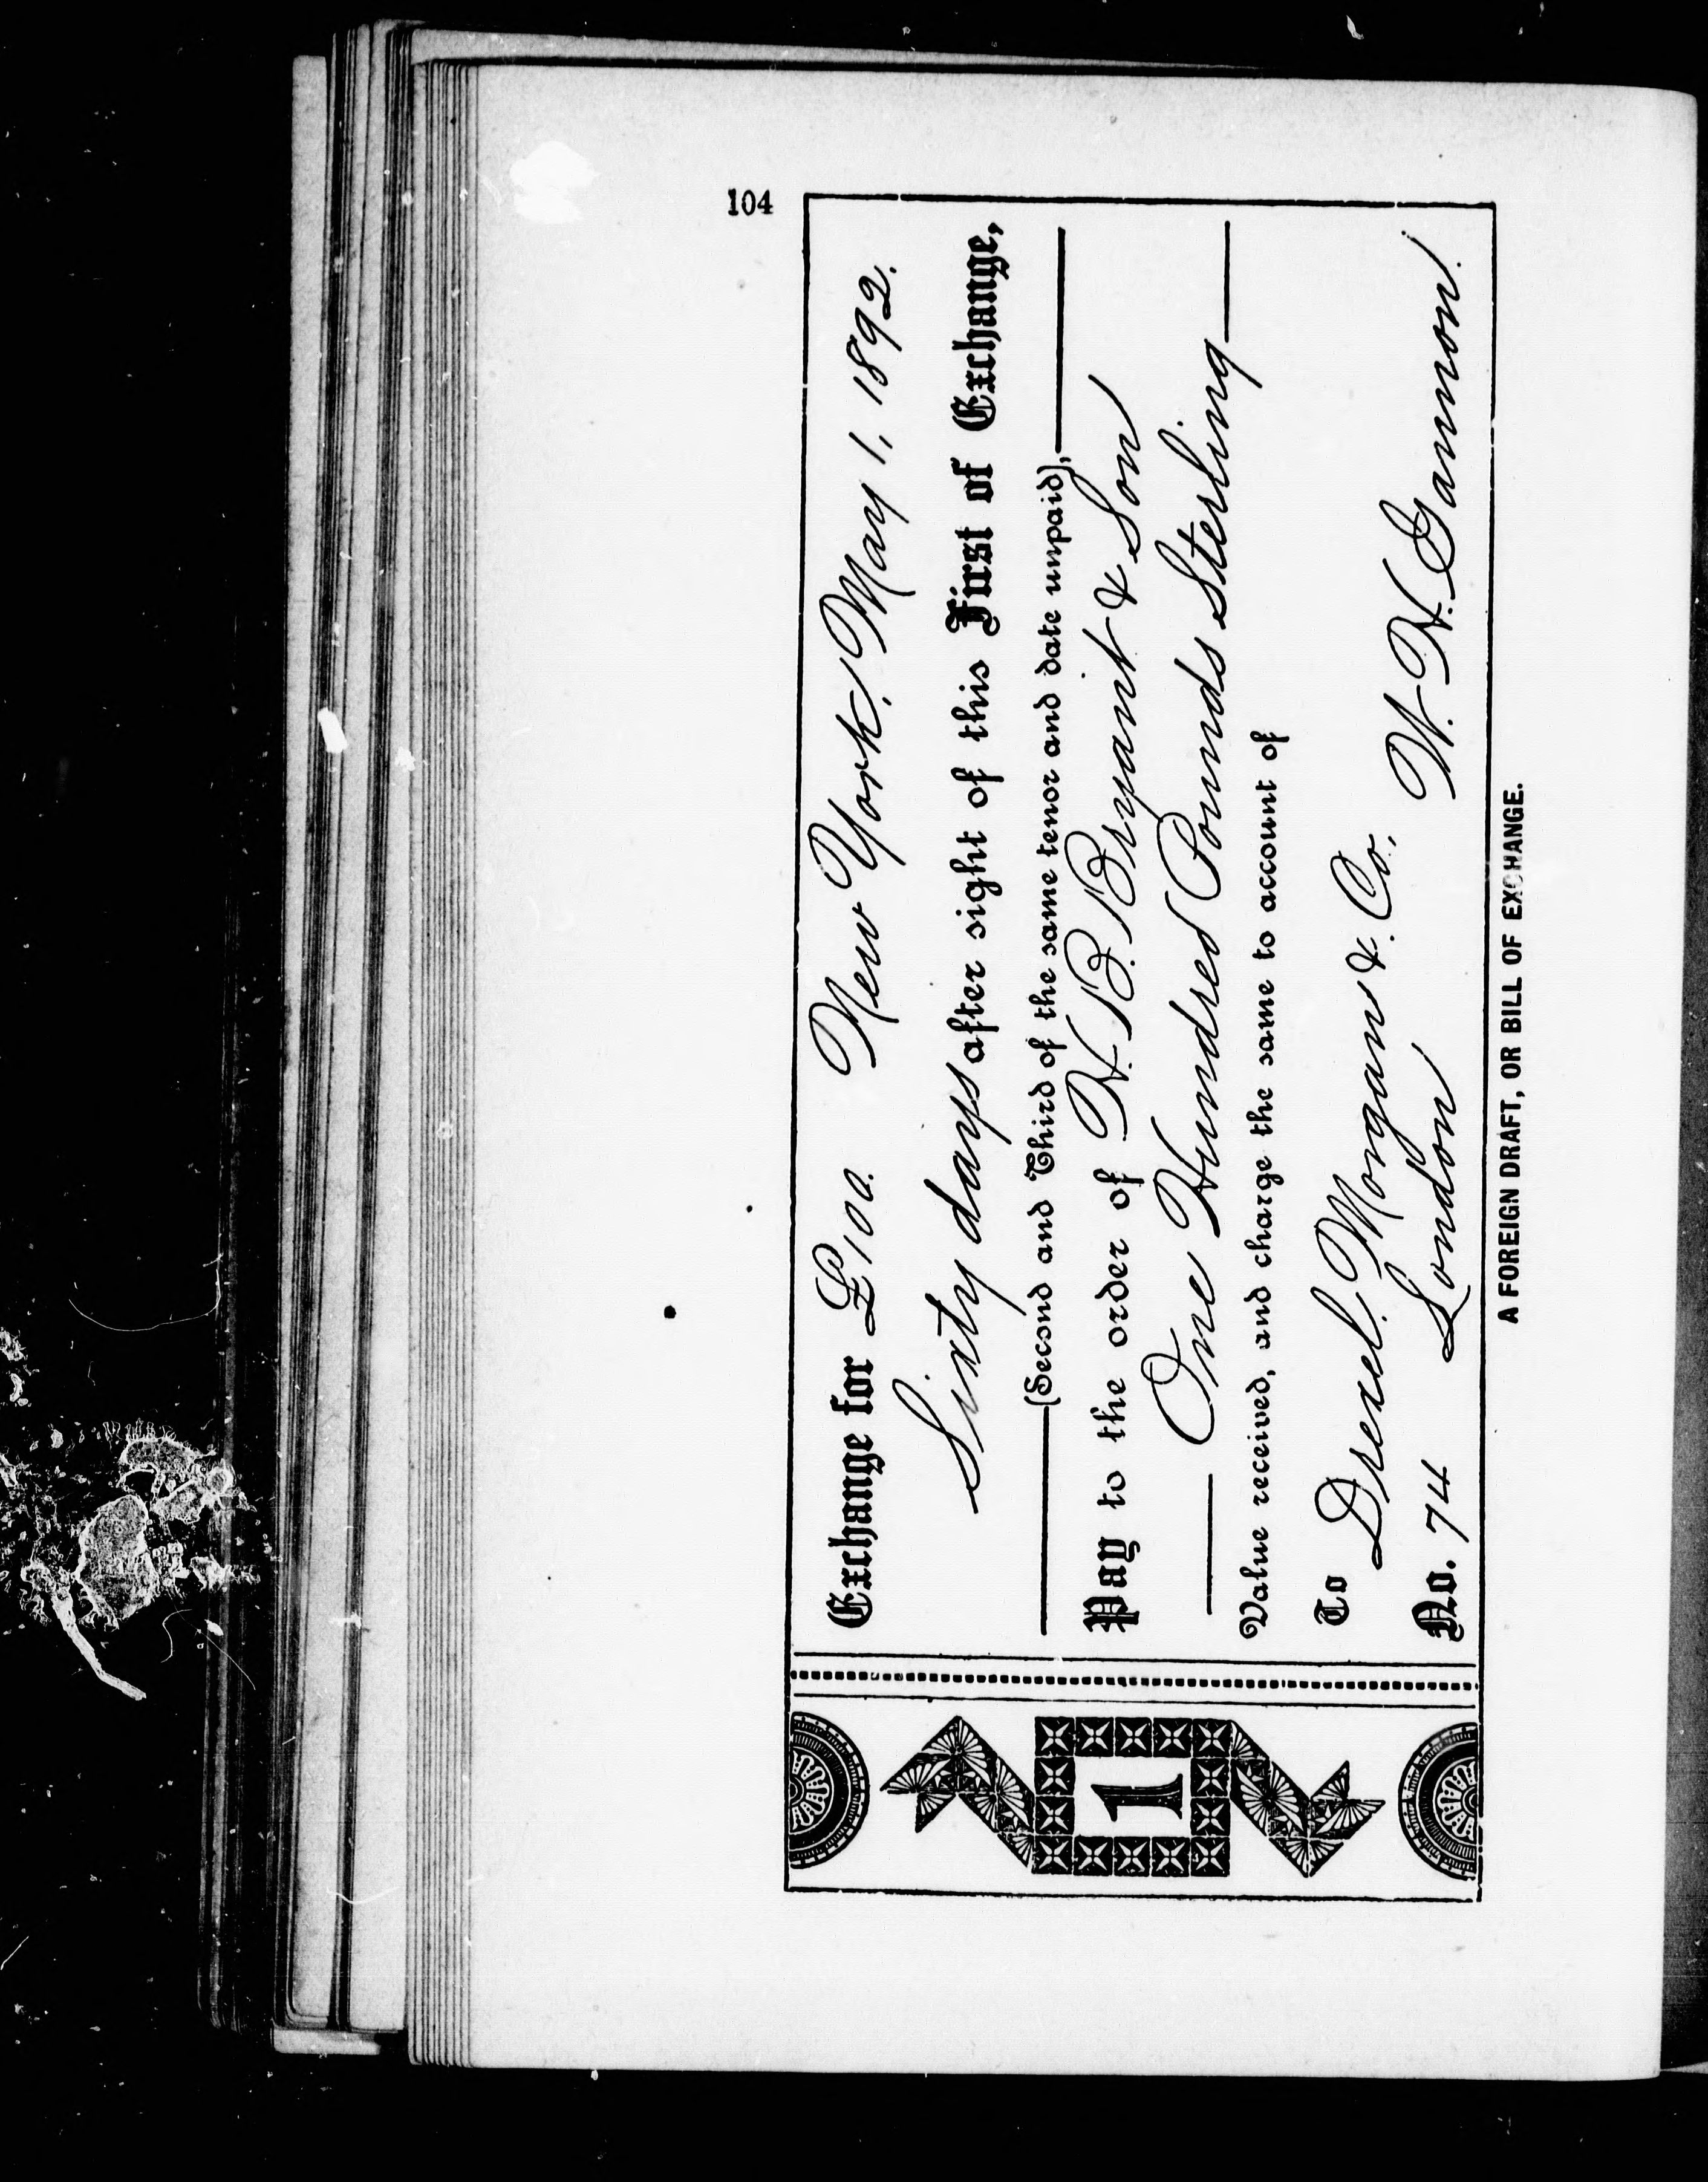 104
Exchange for £100. New York, May 1, 1892.
Sixty days after sight of this First of Exchange,
(Second and Third of the same tenor and date unpaid),
Pay to the order of H. B. Bryant & Son
One Hundred Pounds Sterling
Value received, and charge the same to account of
To Drexel, Morgan & Co.
No. 74 London W. H. Gannon.
1
A FOREIGN DRAFT, OR BILL OF EXCHANGE.